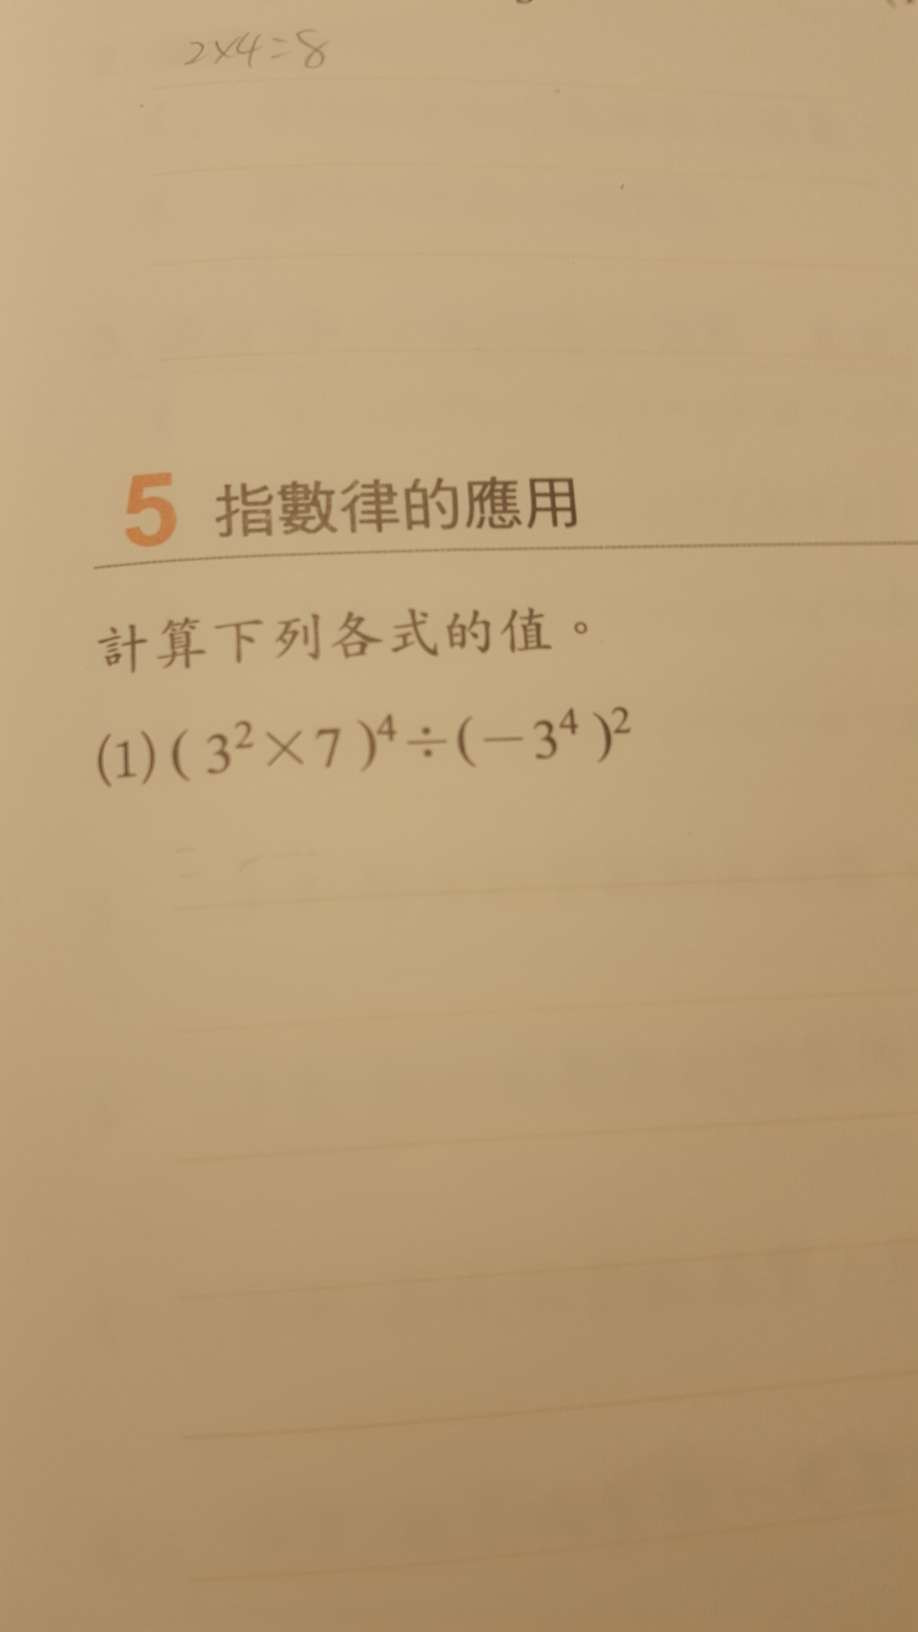 2×4=8
5 指數律的應用
計算下列各式的值。
(1) ( 3² × 7 )⁴ ÷ ( − 3⁴ )²